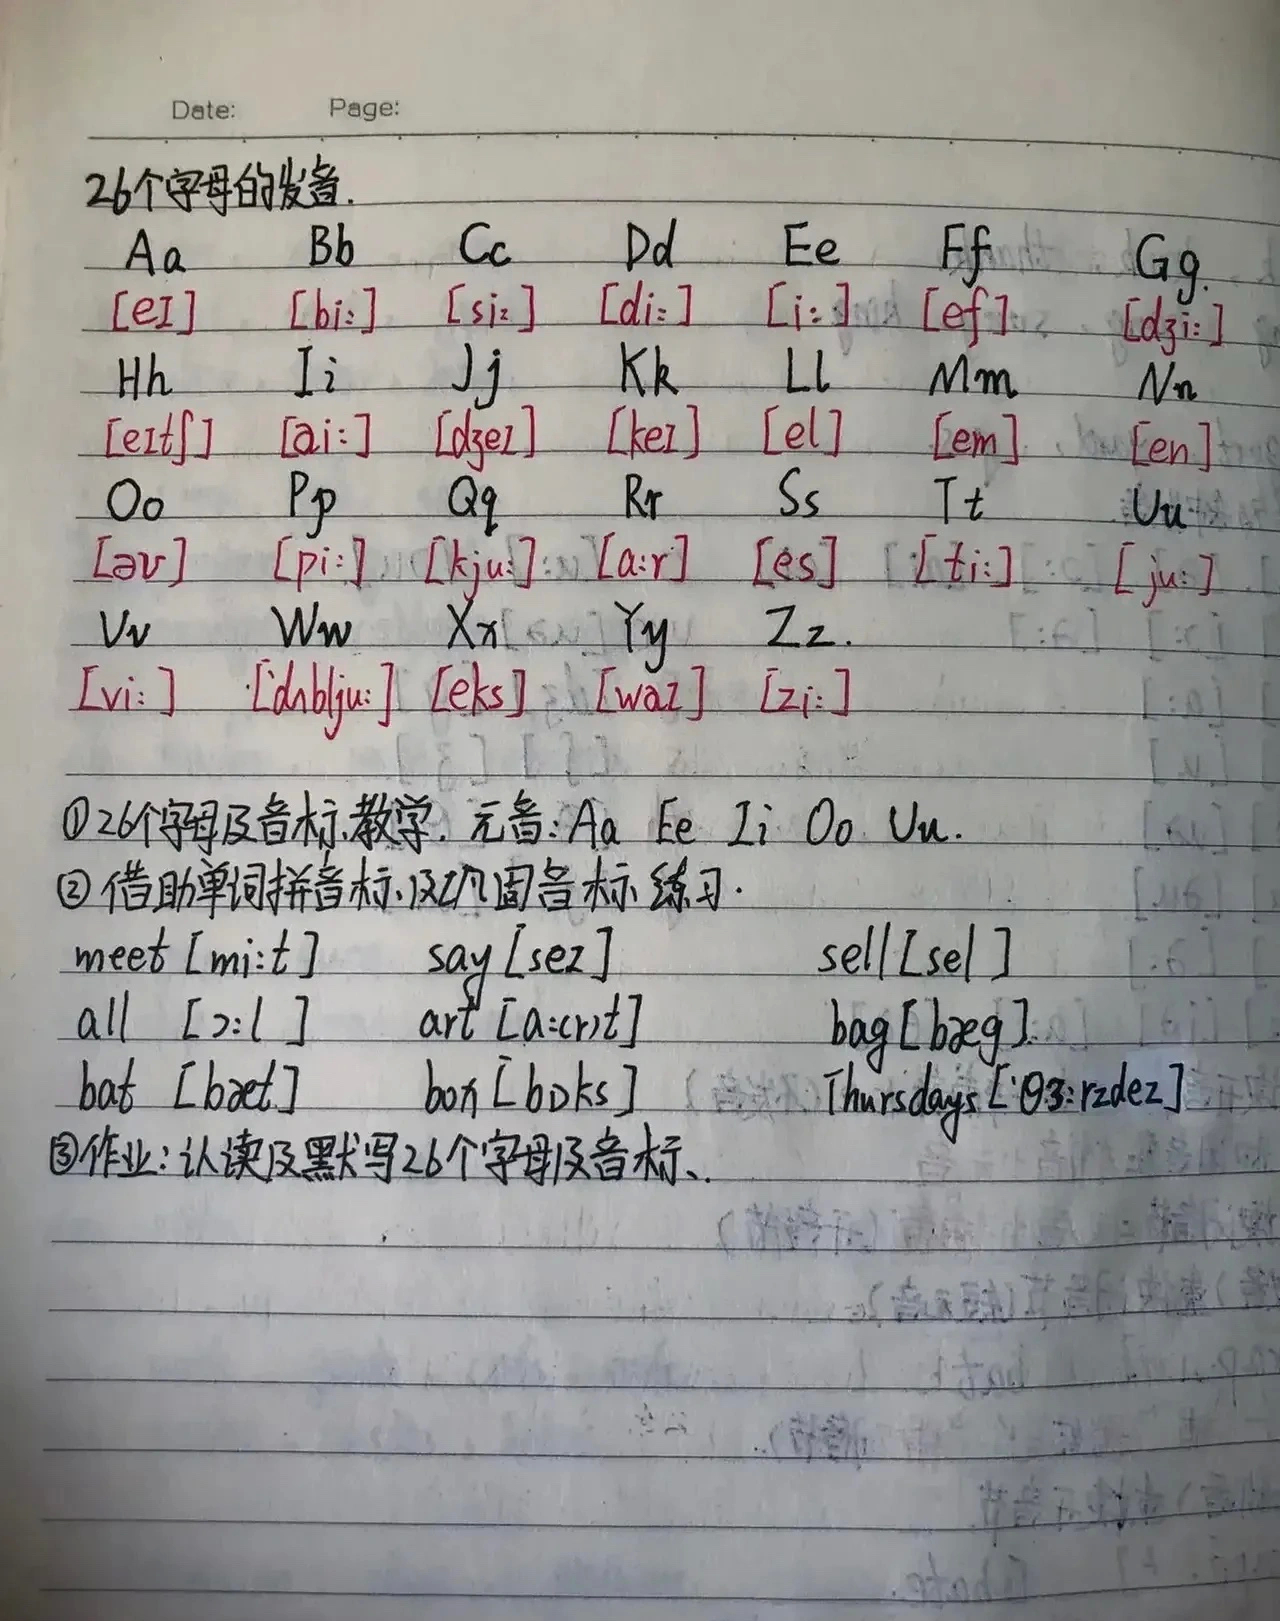 Date: Page:
26个字母的发音.
Aa Bb Cc Dd Ee Ff Gg.
[eɪ] [bi:] [si:] [di:] [i:] [ef] [dʒi:]
Hh Ii Jj Kk Ll Mm Nn
[eɪtʃ] [ai:] [dʒeɪ] [keɪ] [el] [em] [en]
Oo Pp Qq Rr Ss Tt Uu
[əʊ] [pi:] [kju:] [a:r] [es] [ti:] [ju:]
Vv Ww Xx Yy Zz.
[vi:] ['dʌblju:] [eks] [waɪ] [zi:]
①26个字母及音标教学. 元音: Aa Ee Ii Oo Uu.
②借助单词拼音标,及 音标练习.
meet [mi:t] say [seɪ] sell [sel]
all [ɔ:l] art [a:(r)t] bag [bæg]
bat [bæt] box [bɒks] Thursdays ['θɜ:rzdeɪ]
③作业:认读及默写26个字母及音标、.